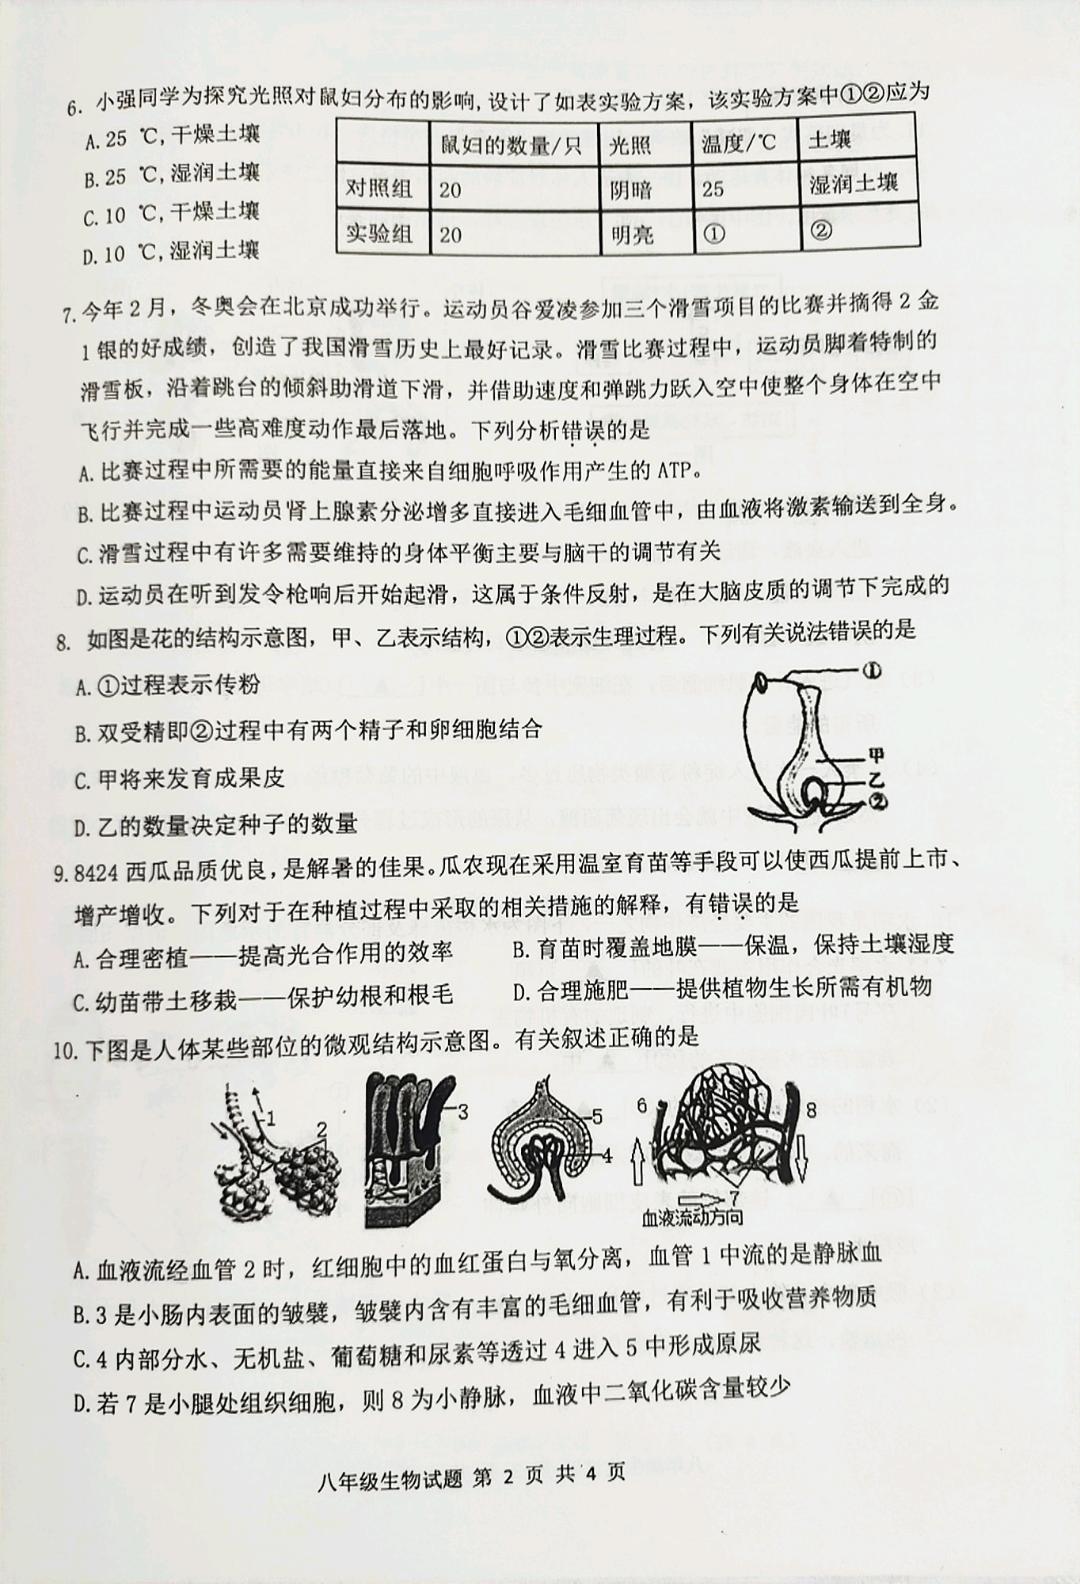 6. 小强同学为探究光照对鼠妇分布的影响,设计了如表实验方案，该实验方案中①②应为
A.25 ℃,干燥土壤
B.25 ℃,湿润土壤
C.10 ℃,干燥土壤
D.10 ℃,湿润土壤
鼠妇的数量/只 光照 温度/℃ 土壤
对照组 20 阴暗 25 湿润土壤
实验组 20 明亮 ① ②
7.今年2月，冬奥会在北京成功举行。运动员谷爱凌参加三个滑雪项目的比赛并摘得2金
1银的好成绩，创造了我国滑雪历史上最好记录。滑雪比赛过程中，运动员脚着特制的
滑雪板，沿着跳台的倾斜助滑道下滑，并借助速度和弹跳力跃入空中使整个身体在空中
飞行并完成一些高难度动作最后落地。下列分析错误的是
A.比赛过程中所需要的能量直接来自细胞呼吸作用产生的ATP。
B.比赛过程中运动员肾上腺素分泌增多直接进入毛细血管中，由血液将激素输送到全身。
C.滑雪过程中有许多需要维持的身体平衡主要与脑干的调节有关
D.运动员在听到发令枪响后开始起滑，这属于条件反射，是在大脑皮质的调节下完成的
8. 如图是花的结构示意图，甲、乙表示结构，①②表示生理过程。下列有关说法错误的是
A.①过程表示传粉
B.双受精即②过程中有两个精子和卵细胞结合
C.甲将来发育成果皮
D.乙的数量决定种子的数量
①
甲
乙
②
9.8424西瓜品质优良,是解暑的佳果。瓜农现在采用温室育苗等手段可以使西瓜提前上市、
增产增收。下列对于在种植过程中采取的相关措施的解释，有错误的是
A.合理密植——提高光合作用的效率 B.育苗时覆盖地膜——保温，保持土壤湿度
C.幼苗带土移栽——保护幼根和根毛 D.合理施肥——提供植物生长所需有机物
10.下图是人体某些部位的微观结构示意图。有关叙述正确的是
1 2 3 5 4 6 8 7
血液流动方向
A.血液流经血管2时，红细胞中的血红蛋白与氧分离，血管1中流的是静脉血
B.3是小肠内表面的皱襞，皱襞内含有丰富的毛细血管，有利于吸收营养物质
C.4内部分水、无机盐、葡萄糖和尿素等透过4进入5中形成原尿
D.若7是小腿处组织细胞，则8为小静脉，血液中二氧化碳含量较少
八年级生物试题 第 2 页 共 4 页